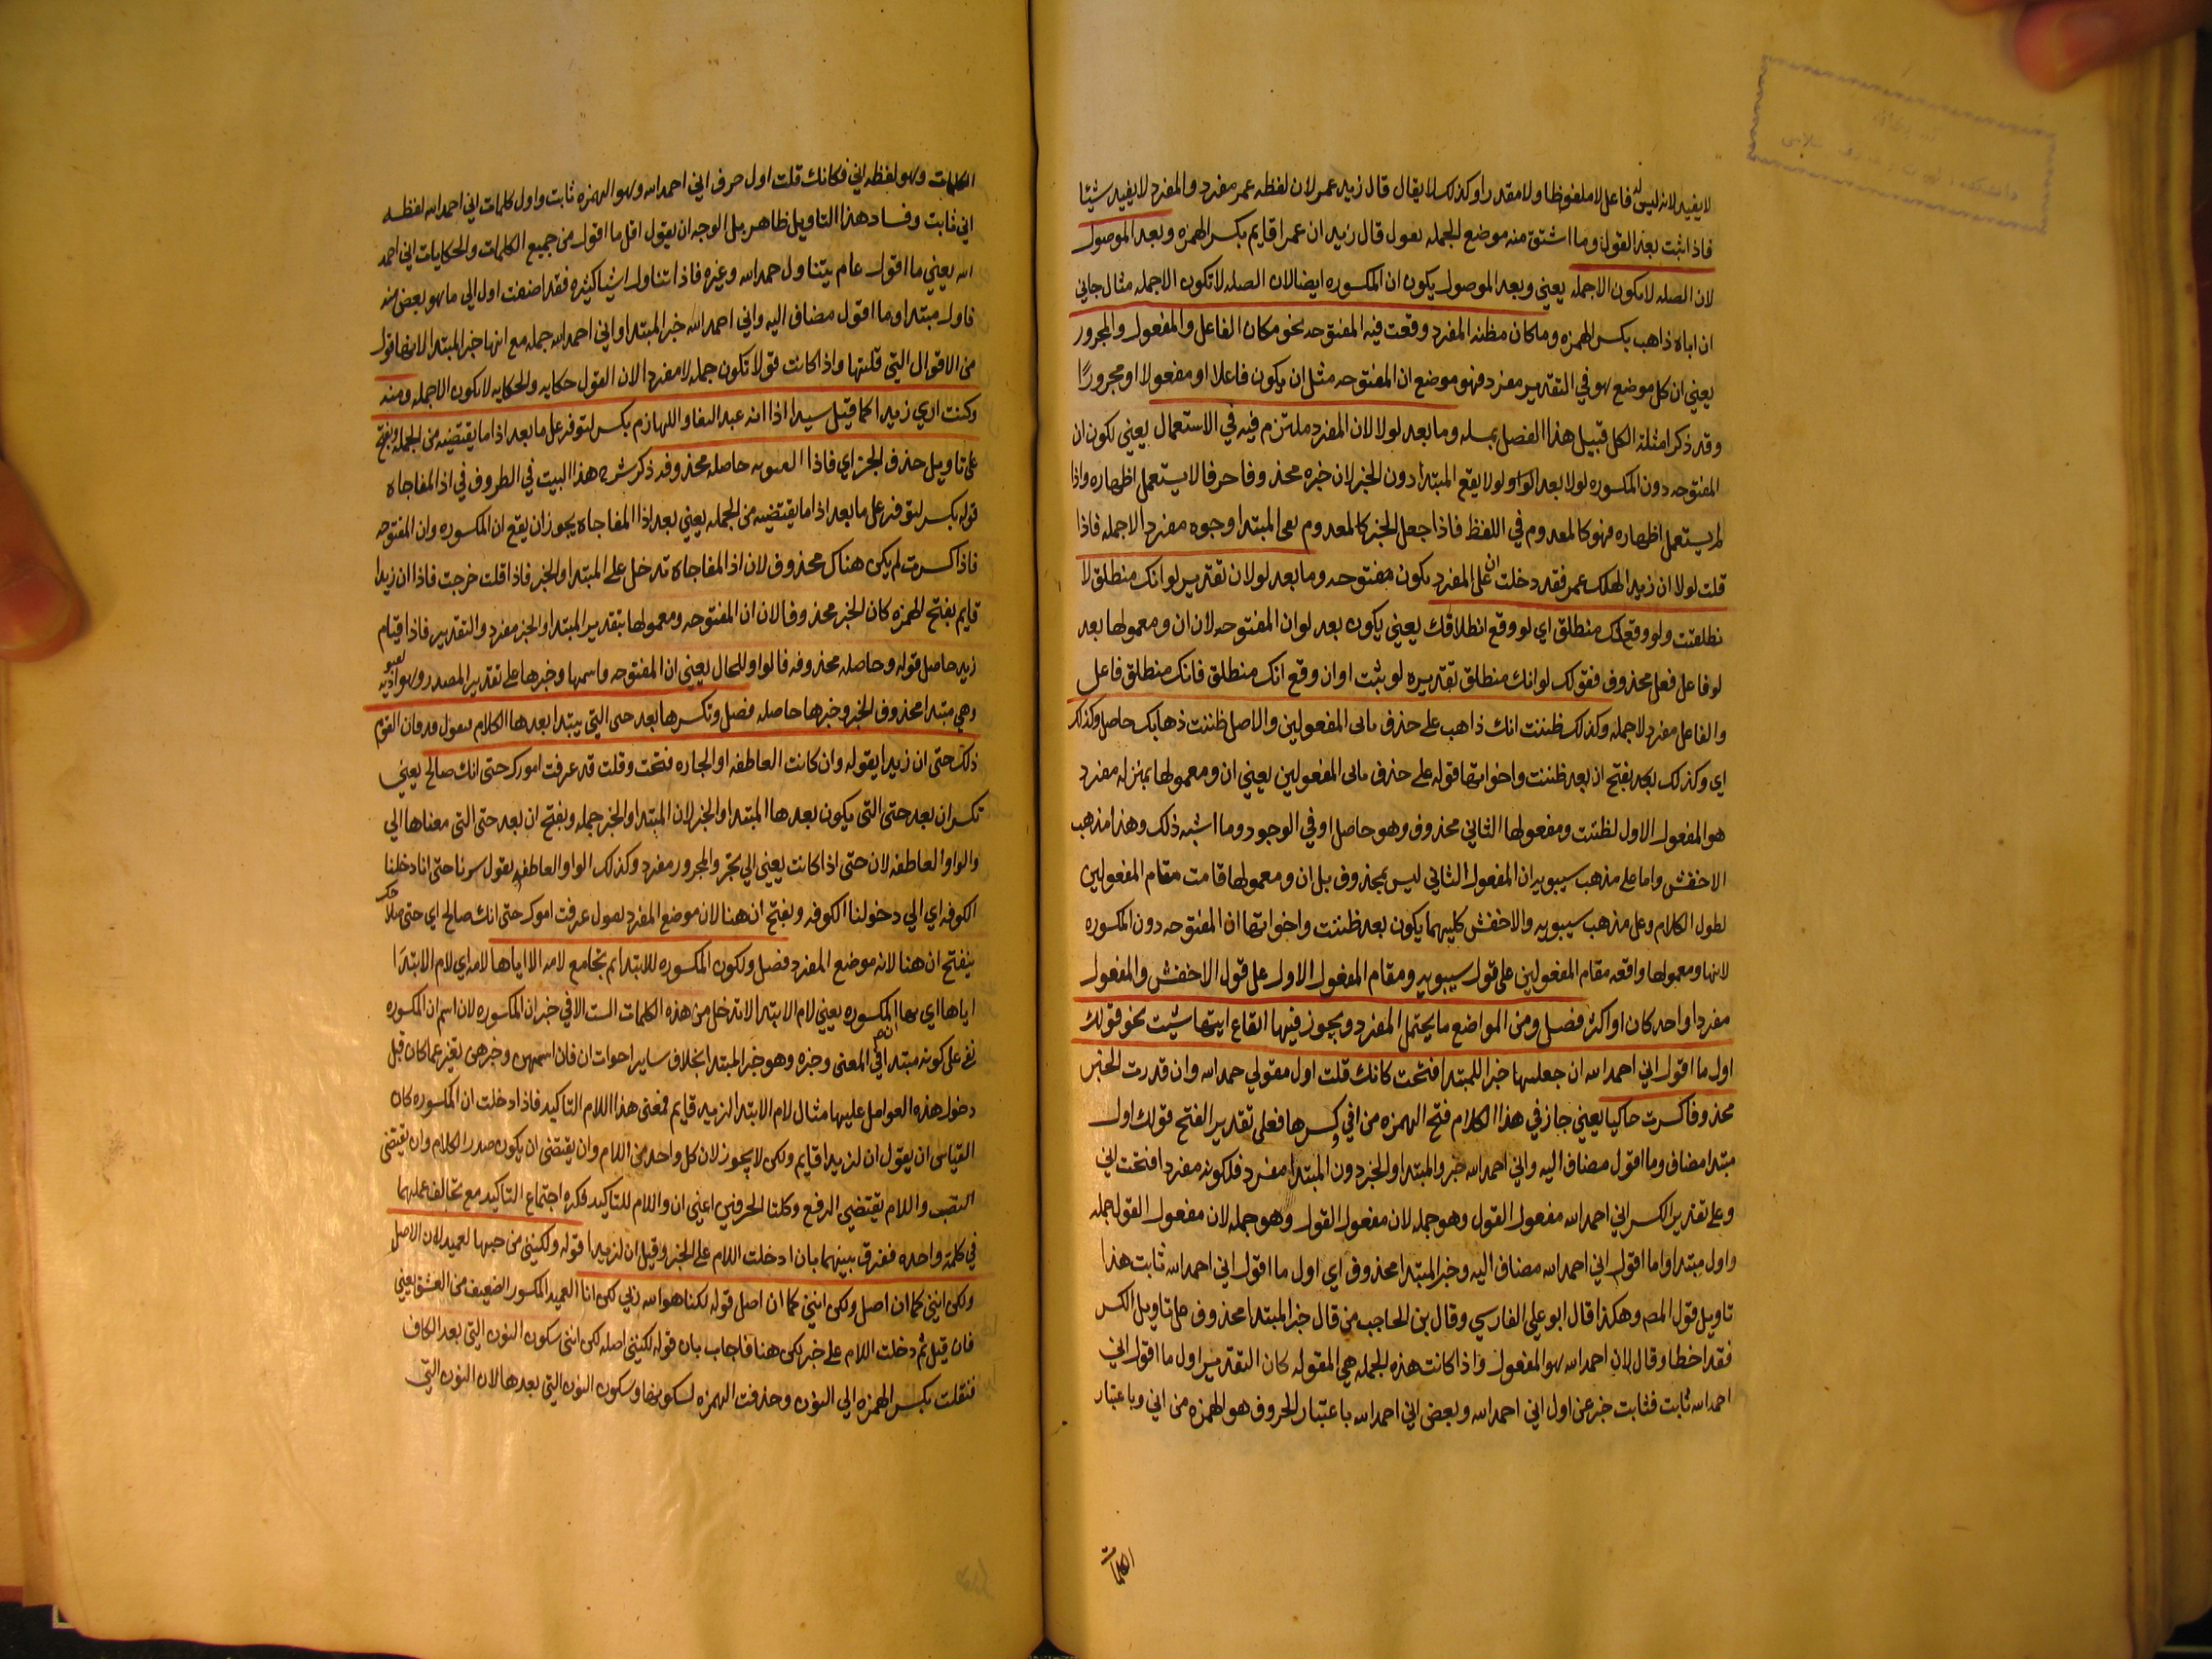 لا يفيد لانه ليس له فاعل لا ملفوظا ولا مقدرا وكذلك لا يقال قال زيد عمر لان لفظه عمر مفرد والمفرد لا يفيد شيئا
فاذا ثبت بعد القول وما اشتق منه موضع الجمله يقول قال زيد ان عمرا قايم بكسر الهمزه وبعد الموصول
لان الصله لا يكون الا جمله يعني وبعد الموصول يكون ان المكسوره ايضا لان الصله لا تكون الا جمله مثال جاني
ان اباه ذاهب بكسر الهمزه وما كان مظنه المفرد وقعت فيه المفتوحه نحو مكان الفاعل والمفعول والمجرور
يعني ان كل موضع هو في التقدير مفرد فهو موضع ان المفتوحه مثل ان يكون فاعلا او مفعولا او مجرورًا
وقد ذكر امثلة الكل قبيل هذا الفصل وما بعد لولا لان المفرد ملتزم فيه في الاستعمال يعني يكون ان
المفتوحه دون المكسوره لولا بعد الواو لولا يقع المبتدأ دون الخبر لان خبره محذوفا حرفا لا يستعمل اظهاره واذا
لم يستعمل اظهاره فهو كالمعدوم في اللفظ فاذا جعل الخبر كالمعدوم بقي المبتدا وجوه مفرد الا جمله فاذا
قلت لولا ان زيدا لهلك عمر فقد دخلت ان على المفرد يكون مفتوحه وما بعد لو لان تقدير لو انك منطلق لا
نطلقت ولو وقع انك منطلق اي لو وقع انطلاقك يعني يكون بعد لو ان المفتوحه لان ان ومعمولها بعد
لو فاعل فعل محذوف فقولك لو انك منطلق تقديره لو ثبت او ان وقع انك منطلق فانك منطلق فاعل
والفاعل مفرد لا جمله وكذلك ظننت انك ذاهب على حذف ثاني المفعولين والاصل ظننت ذهابك حاصل وكذلك
اي وكذلك يجد بفتح ان بعد ظننت واخواتها قوله على حذف ثاني المفعولين يعني ان ومعمولها بمنزله مفرد
هو المفعول الاول لظننت ومفعولها الثاني محذوف وهو حاصل او في الوجود وما اشبه ذلك وهذا مذهب
الاخفش واما على مذهب سيبويه ان المفعول الثاني ليس بمحذوف بل ان ومعمولها قامت مقام المفعولين
لطول الكلام وعلى مذهب سيبويه والاخفش كليهما يكون بعد ظننت واخواتها ان المفتوحه دون المكسوره
لانها ومعمولها واقعه مقام المفعولين على قول سيبويه ومقام المفعول الاول على قول الاخفش والمفعول
مفردا واحد كان او اكثر فصل ومن المواضع ما يحتمل المفرد ويجوز فيها ايقاع ايتها شيت نحو قولك
اول ما اقول اني احمد الله ان جعلتها خبرا للمبتدا فتحت كانك قلت اول مقولي حمد الله وان قدرت الخبر
محذوفا كسرت حاكيا يعني جاز في هذا الكلام فتح الهمزه من اني وكسرها فعلى تقدير الفتح قولك اول
مبتدا مضاف وما اقول مضاف اليه واني احمد الله خبر والمبتدا والخبر دون المبتدا مفرد فلكونه مفردا فتحت اني
وعلى تقدير الكسر اني احمد الله مفعول القول وهو جمله لان مفعول القول وهو جمله لان مفعول القول جمله
واول مبتدا وما اقول اني احمد الله مضاف اليه وخبر المبتدا محذوف اي اول ما اقول اني احمد الله ثابت هذا
تاويل قول المص وهكذا قال ابو علي الفارسي وقال بن الحاجب من قال خبر المبتدا محذوف على تاويل الكسر
فقد اخطا وقال لان احمد الله هو المفعول واذا كانت هذه الجمله هي المقوله كان التقدير اول ما اقول اني
احمد الله ثابت فثابت خبر عن اول اني احمد الله وبعض اني احمد الله باعتبار الحروف هو الهمزه من اني وباعتبار
الكلمات
الكلمات وهو لفظه اني فكانك قلت اول حرف اني احمد الله وهو الهمزه ثابت واول كلمات اني احمد الله لفظه
اني ثابت وفساد هذا التاويل ظاهر بل الوجه ان يقول اقل ما اقول من جميع الكلمات والحكايات اني احمد
الله يعني ما اقول عام يتناول حمد الله وغيره فاذا تناول اشيا كثيره فقد اضفت اول الى ما هو بعض منه
فاول مبتدا وما اقول مضاف اليه واني احمد الله خبر المبتدا واني احمد الله جمله مع انها خبر المبتدا لانها قول
من الاقوال التي قلتها واذا كانت قولا تكون جمله لا مفردا لان القول حكايه والحكايه لا تكون الا جمله ومنه
وكنت اري زيدا كما قيل سيدا اذا انه عبد القفا واللهازم بكسر لتوفر على ما بعد اذا ما يقتضيه من الجمله وبفتح
على تاويل حذف الخبر اي فاذا العبوديه حاصله محذوفه ذكر شرح هذا البيت في الظروف في اذا المفاجاه
قوله بكسر لتوفر على ما بعد اذا ما يقتضيه من الجمله يعني بعد اذا المفاجاه يجوز ان يقع ان المكسوره وان المفتوحه
فاذا كسرت لم يكن هناك محذوف لان اذا المفاجاه تدخل على المبتدا والخبر فاذا قلت خرجت فاذا ان زيدا
قايم بفتح الهمزه كان الخبر محذوفا لان ان المفتوحه ومعمولها بتقدير المبتدا والخبر مفرد والتقدير فاذا قيام
زيد حاصل قوله وحاصله محذوفه قالوا وللحال يعني ان المفتوحه واسمها وخبرها على تقدير المصدر وهو العبوديه
وهي مبتدا محذوف الخبر وخبرها حاصله فصل وتكسرها بعد حتى التي يبتدا بعدها الكلام تقول قد قال القوم
ذلك حتى ان زيدا يقوله وان كانت العاطفه او الجاره فتحت وقلت قد عرفت امورك حتى انك صالح يعني
تكسر ان بعد حتى التي يكون بعدها المبتدا والخبر لان المبتدا والخبر جمله وبفتح ان بعد حتى التي معناها الي
والواو العاطفه لان حتى اذا كانت يعني الي تجر والمجرور مفرد وكذلك الواو العاطفه تقول سرنا حتى انا دخلنا
الكوفه اي الي دخولنا الكوفه وبفتح ان هنا لان موضع المفرد تقول عرفت امورك حتى انك صالح اي حتى صلاحك
بفتح ان هنا لانه موضع المفرد فصل ولكون المكسوره للابتدا لم تجامع لامه الا اياها لامه اي لام الابتدَا
اياها اي بها المكسوره يعني لام الابتدا لا تدخل من هذه الكلمات الست الا في خبر ان المكسوره لان اسم ان المكسوره
نفع على كونه مبتدا في المعنى وخبره وهو خبر المبتدا بخلاف ساير اخوات ان فان اسمهن وخبرهن تغير عما كان قبل
دخول هذه العوامل عليها مثال لام الابتدا لزيد قايم فمعنى هذا اللام التاكيد فاذا دخلت ان المكسوره كان
القياس ان يقول ان لزيدا قايم ولكن لا يجوز لان كل واحد من اللام وان يقتضي ان يكون صدر الكلام وان يقتضي
النصب واللام يقتضي الرفع وكلتا الحرفين اعني ان واللام للتاكيد فكره اجتماع التاكيد مع تخالف عمليهما
في كلمة واحده ففرق بينهما بان ادخلت اللام على الخبر وقيل ان لزيدا قوله ولكنني من حبها لعميد لان الاصل
ولكن انني كما ان اصل ولكن انني كما ان اصل قوله لكنا هو الله ربي لكن انا العميد المكسور الضعيف من العشق يعني
فان قيل لم دخلت اللام على خبر لكن هنا فاجاب بان قوله لكنني اصله لكن انني سكون النون التي بعد الكاف
فنقلت بكسر الهمزه الي النون وحذفت الهمزه لسكونها وسكون النون التي بعدها لان النون التي